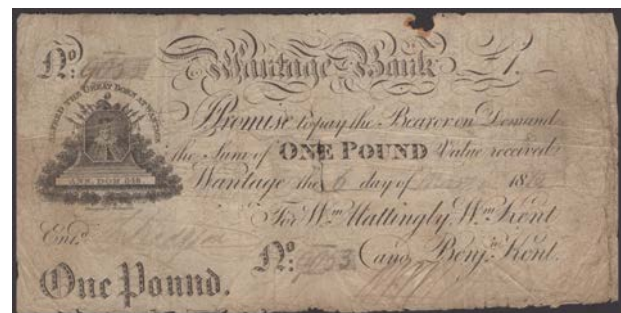 No. Wantage Bank £1.
ALFRED THE GREAT BORN AT WANTAGE
I Promise to pay the Bearer on Demand
the Sum of ONE POUND Value received
Wantage the 6 day of 18
For Wm. Mattingly, Wm. Kent
Entd.
No. and Benjn. Kent.
One Pound.